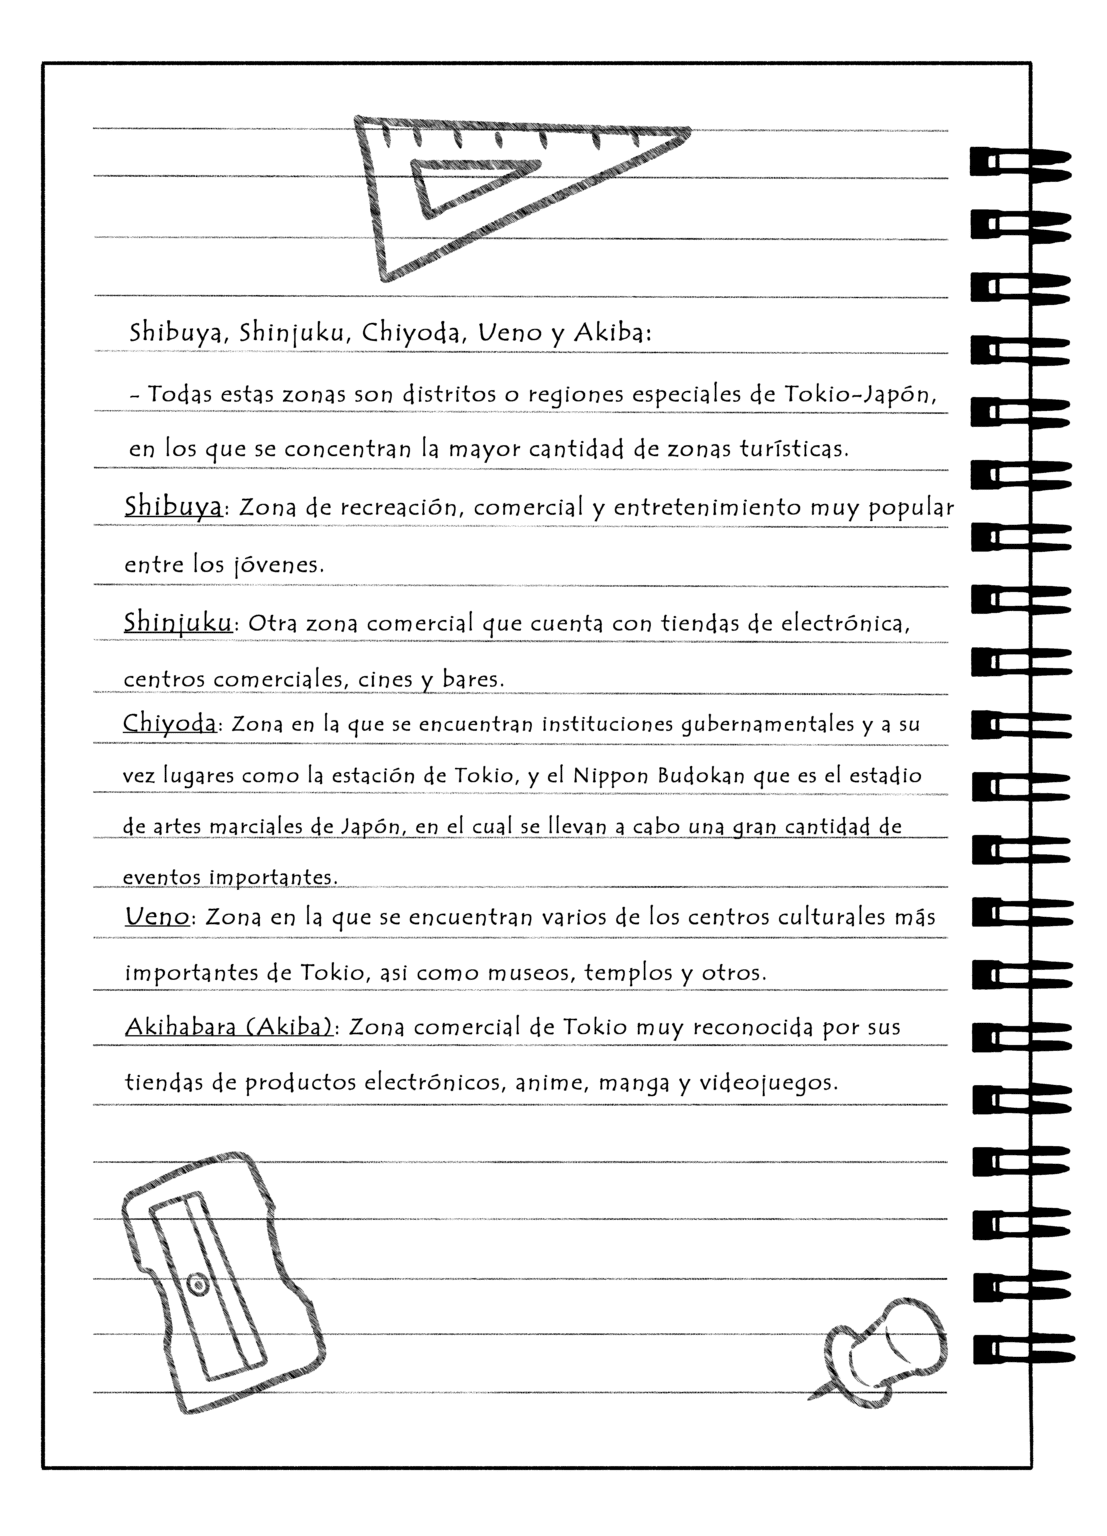 Shibuya, Shinjuku, Chiyoda, Ueno y Akiba:
- Todas estas zonas son distritos o regiones especiales de Tokio-Japón,
en los que se concentran la mayor cantidad de zonas turísticas.
Shibuya: Zona de recreación, comercial y entretenimiento muy popular
entre los jóvenes.
Shinjuku: Otra zona comercial que cuenta con tiendas de electrónica,
centros comerciales, cines y bares.
Chiyoda: Zona en la que se encuentran instituciones gubernamentales y a su
vez lugares como la estación de Tokio, y el Nippon Budokan que es el estadio
de artes marciales de Japón, en el cual se llevan a cabo una gran cantidad de
eventos importantes.
Ueno: Zona en la que se encuentran varios de los centros culturales más
importantes de Tokio, asi como museos, templos y otros.
Akihabara (Akiba): Zona comercial de Tokio muy reconocida por sus
tiendas de productos electrónicos, anime, manga y videojuegos.